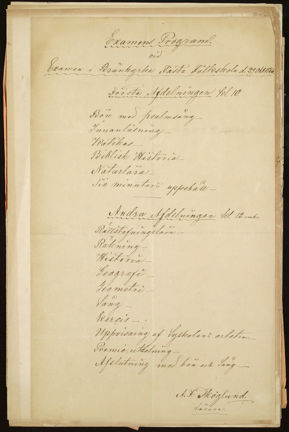 Examens Program
vid
Examen i Brännkyrka Fasta Folkskola d.
Första Afdelningen kl 10
Bön med psalmsång
Innanläsning
Katekes
Biblisk Historia
Naturlära
Tio minuters uppehåll
Andra Afdelningen kl 12
Rättstafningslära
Räkning
Historia
Geografi
Geometri
Sång
Exercis
Uppvisning af Syskolans arbeten
Premieutdelning
Afslutning med bön och Sång
A. F. Höglund
Lärare